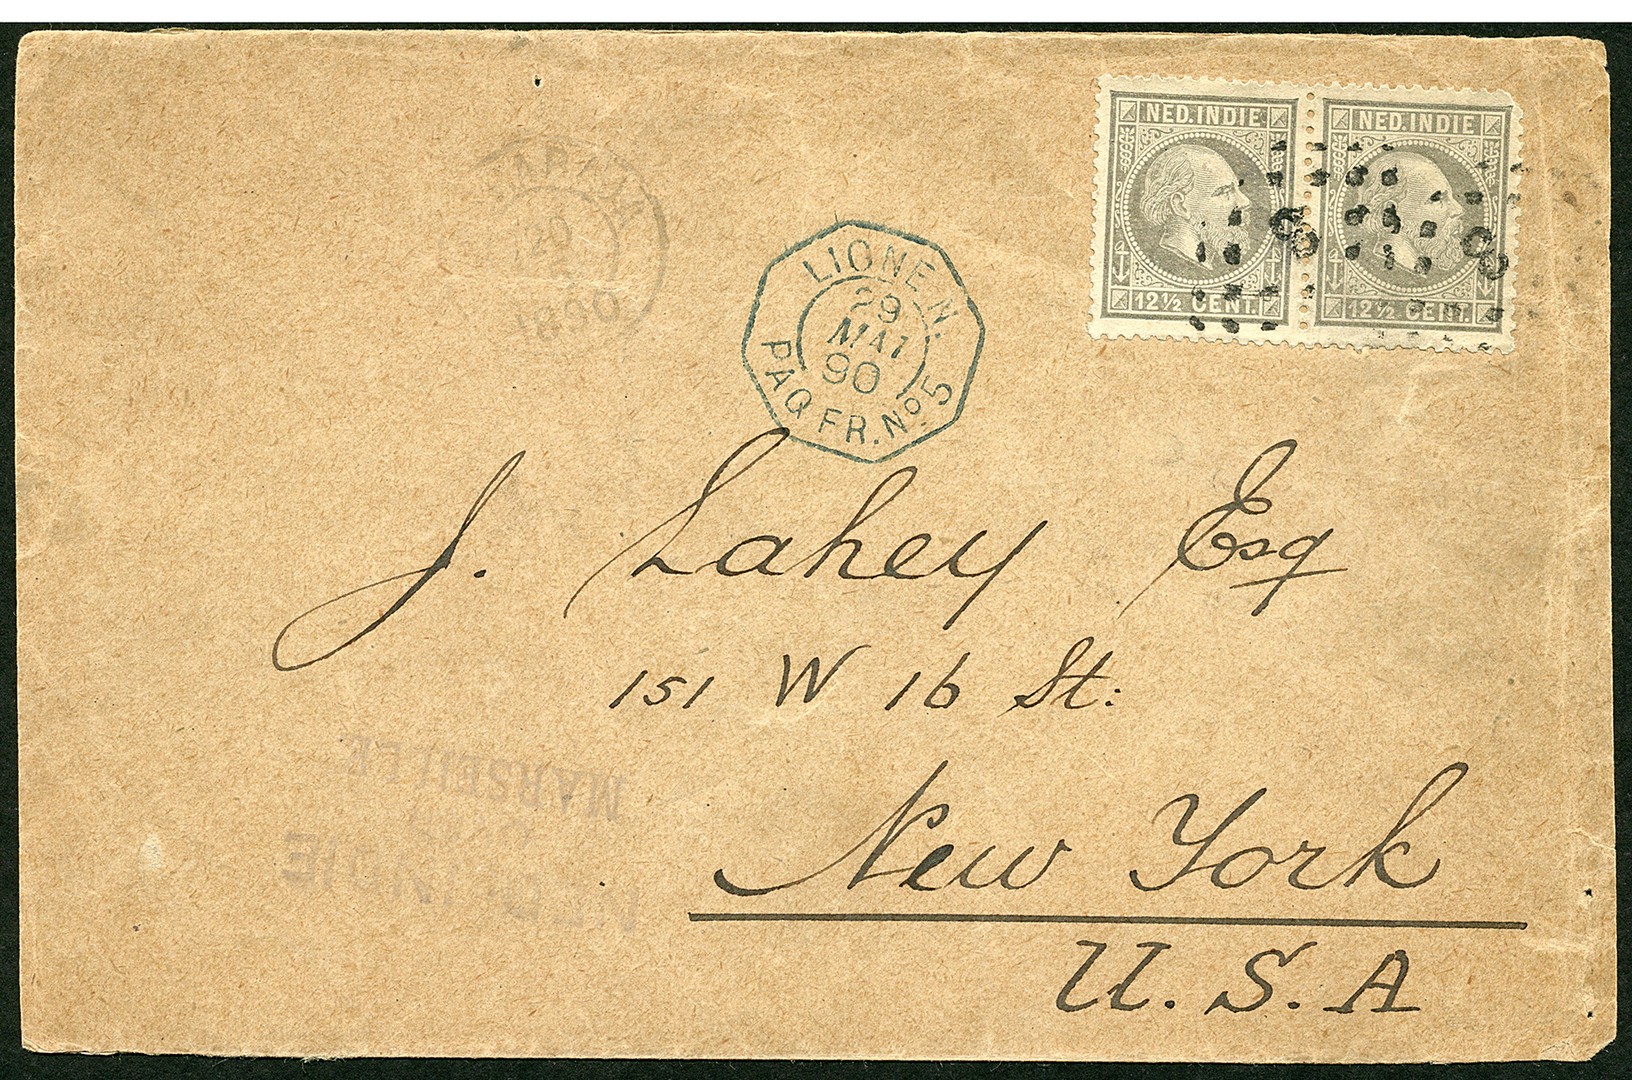 NED. INDIE NED. INDIE
12½ CENT. 12½ CENT.
8 8
LIGNE N.
29
MAI
90
PAQ. FR. Nº 5
J. Lahey Esq
151 W 16 St:
New York
U. S. A
MARSEILLE
NED. INDIE